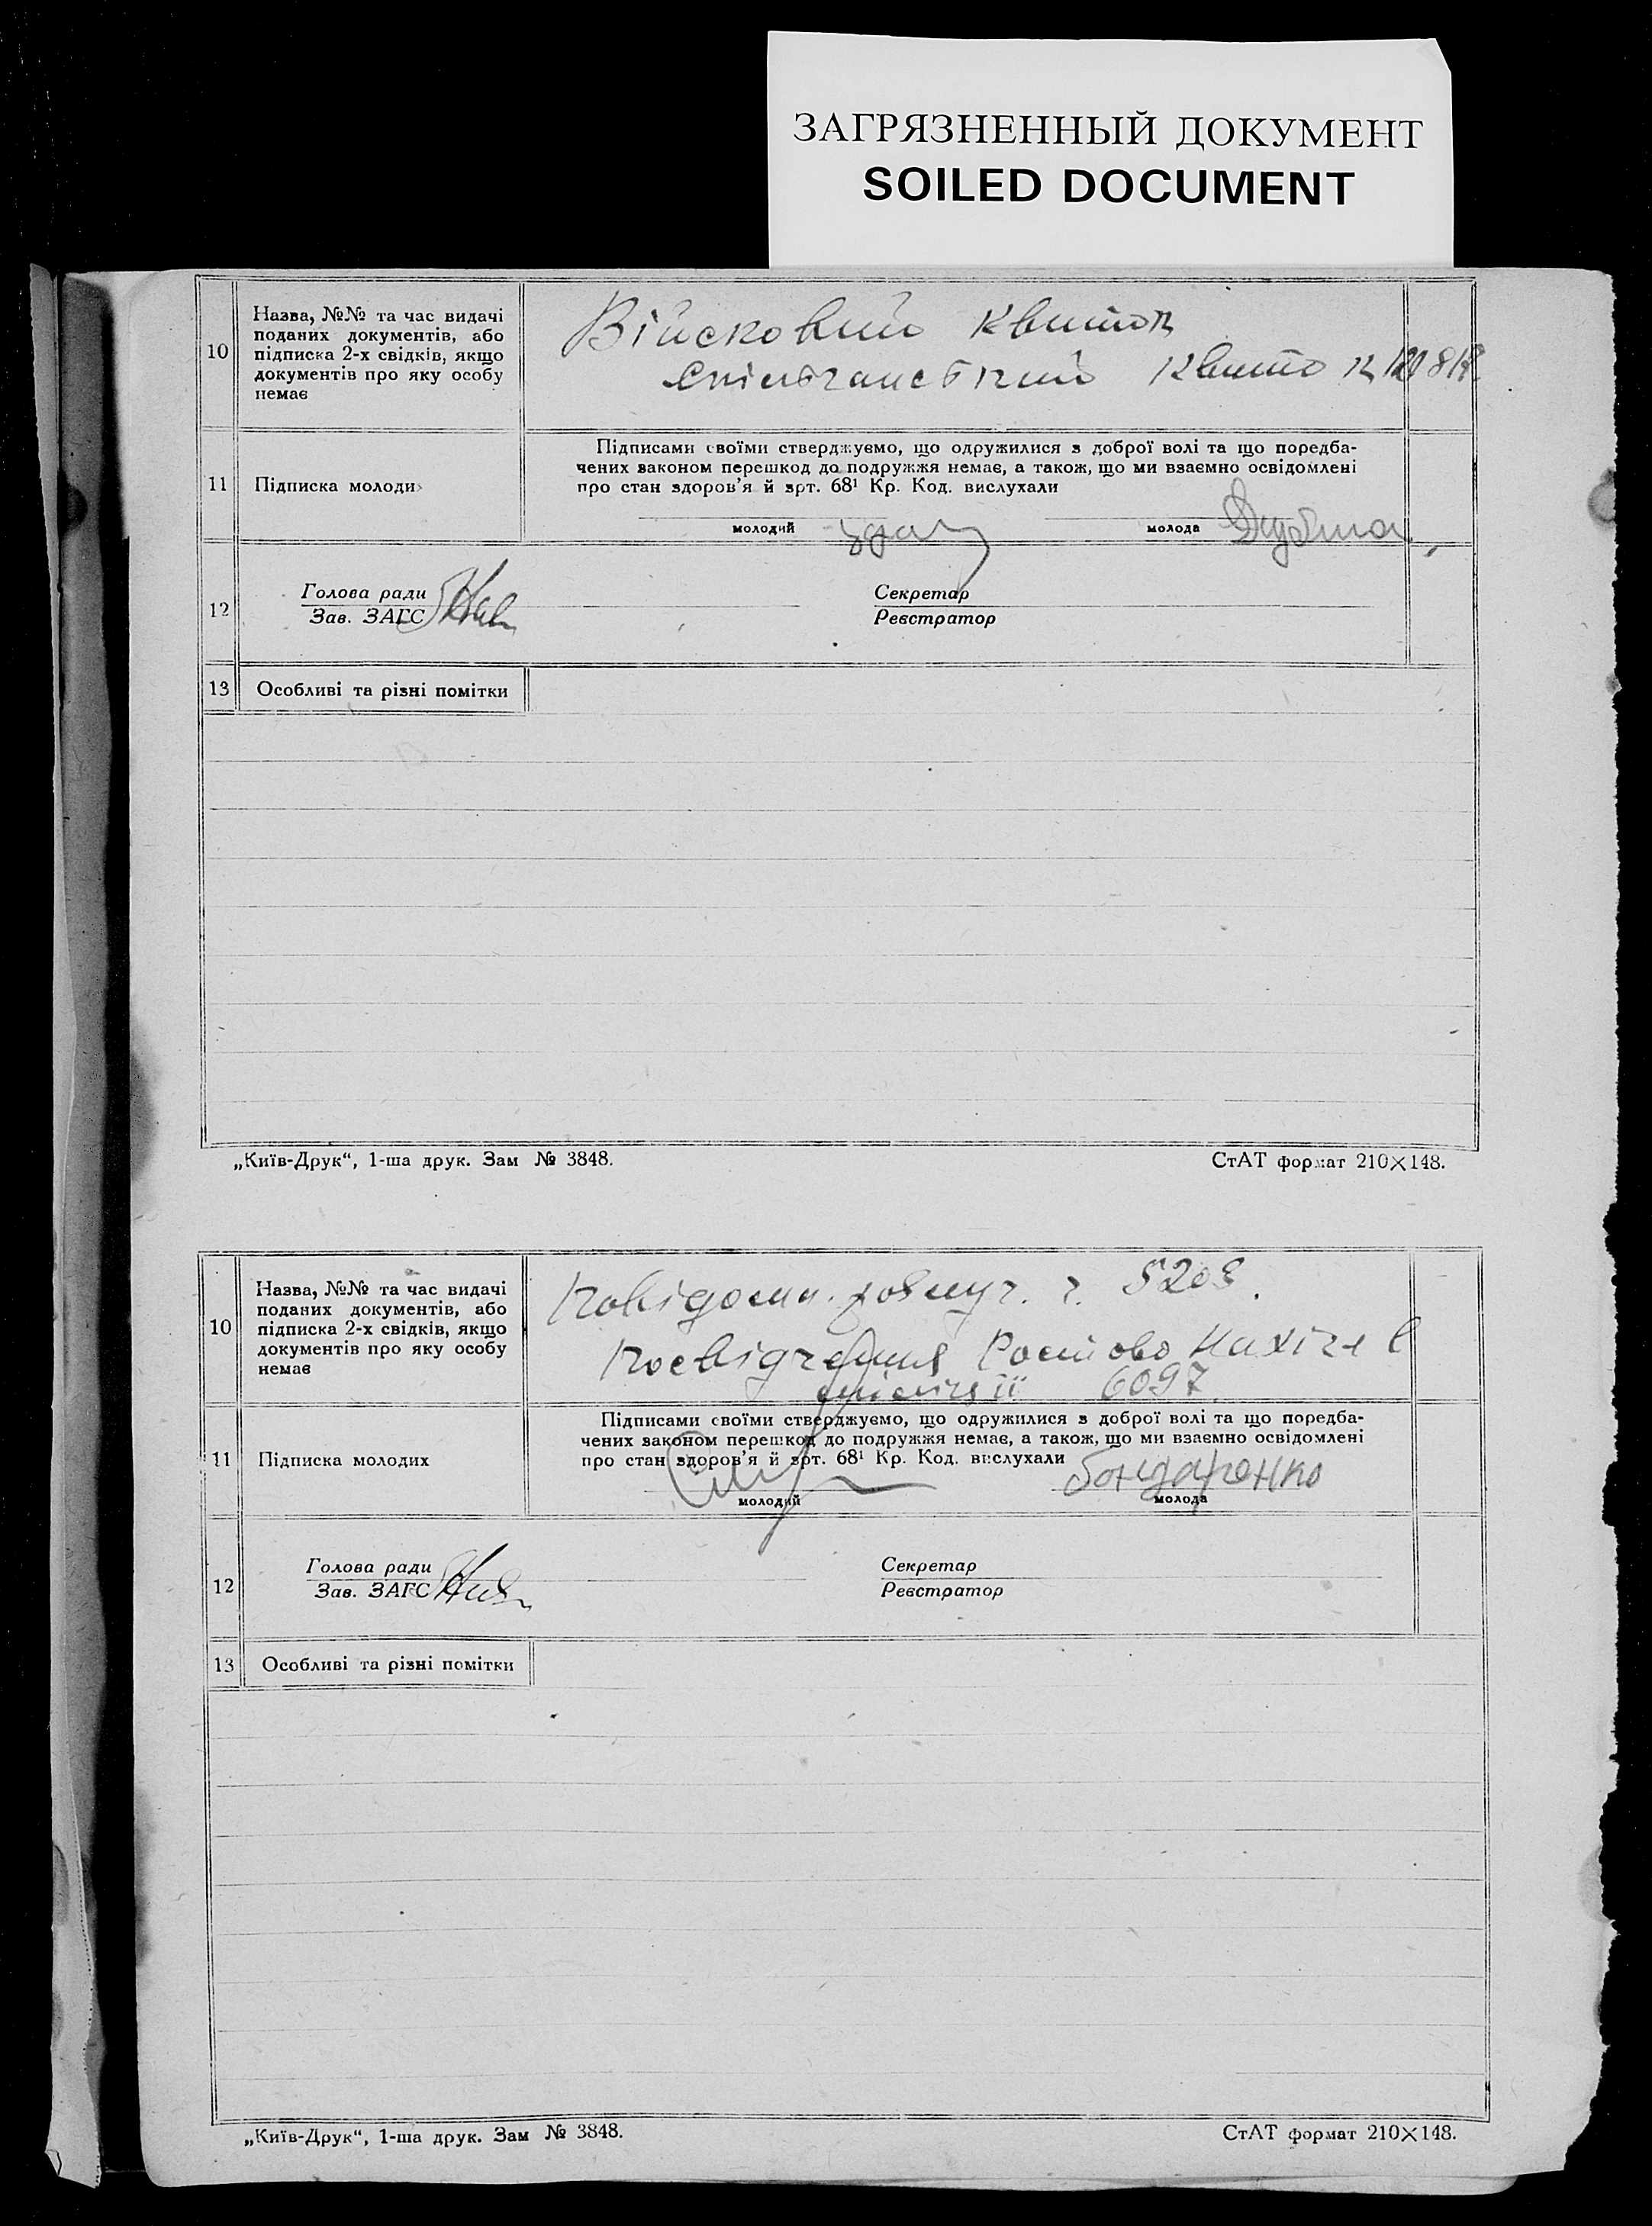 ЗАГРЯЗНЕННЫЙ ДОКУМЕНТ
SOILED DOCUMENT
10
Назва, №№ та час видачі
поданих документів, або
підписка 2-х свідків, якщо
документів про яку особу
немає
Війсковий квиток
квиток
11
Підписка молоди
Підписами своїми стверджуємо, що одружилися з доброї волі та що поредба-
чених законом перешкод до подружжя немає, а також, що ми взаємно освідомлені
про стан здоров'я й зрт. 68¹ Кр. Код. вислухали
молодий
молода
12
Голова ради
Зав. ЗАГС
Секретар
Реєстратор
13
Особливі та різні помітки
„Київ-Друк“, 1-ша друк. Зам № 3848.
СтАТ формат 210×148.
10
Назва, №№ та час видачі
поданих документів, або
підписка 2-х свідків, якщо
документів про яку особу
немає
5203.
Ростово Нахічев
міліції 6097
11
Підписка молодих
Підписами своїми стверджуємо, що одружилися з доброї волі та що поредба-
чених законом перешкод до подружжя немає, а також, що ми взаємно освідомлені
про стан здоров'я й зрт. 68¹ Кр. Код. вислухали
молодий
Бондаренко
молода
12
Голова ради
Зав. ЗАГС
Секретар
Реєстратор
13
Особливі та різні помітки
„Київ-Друк“, 1-ша друк. Зам № 3848.
СтАТ формат 210×148.